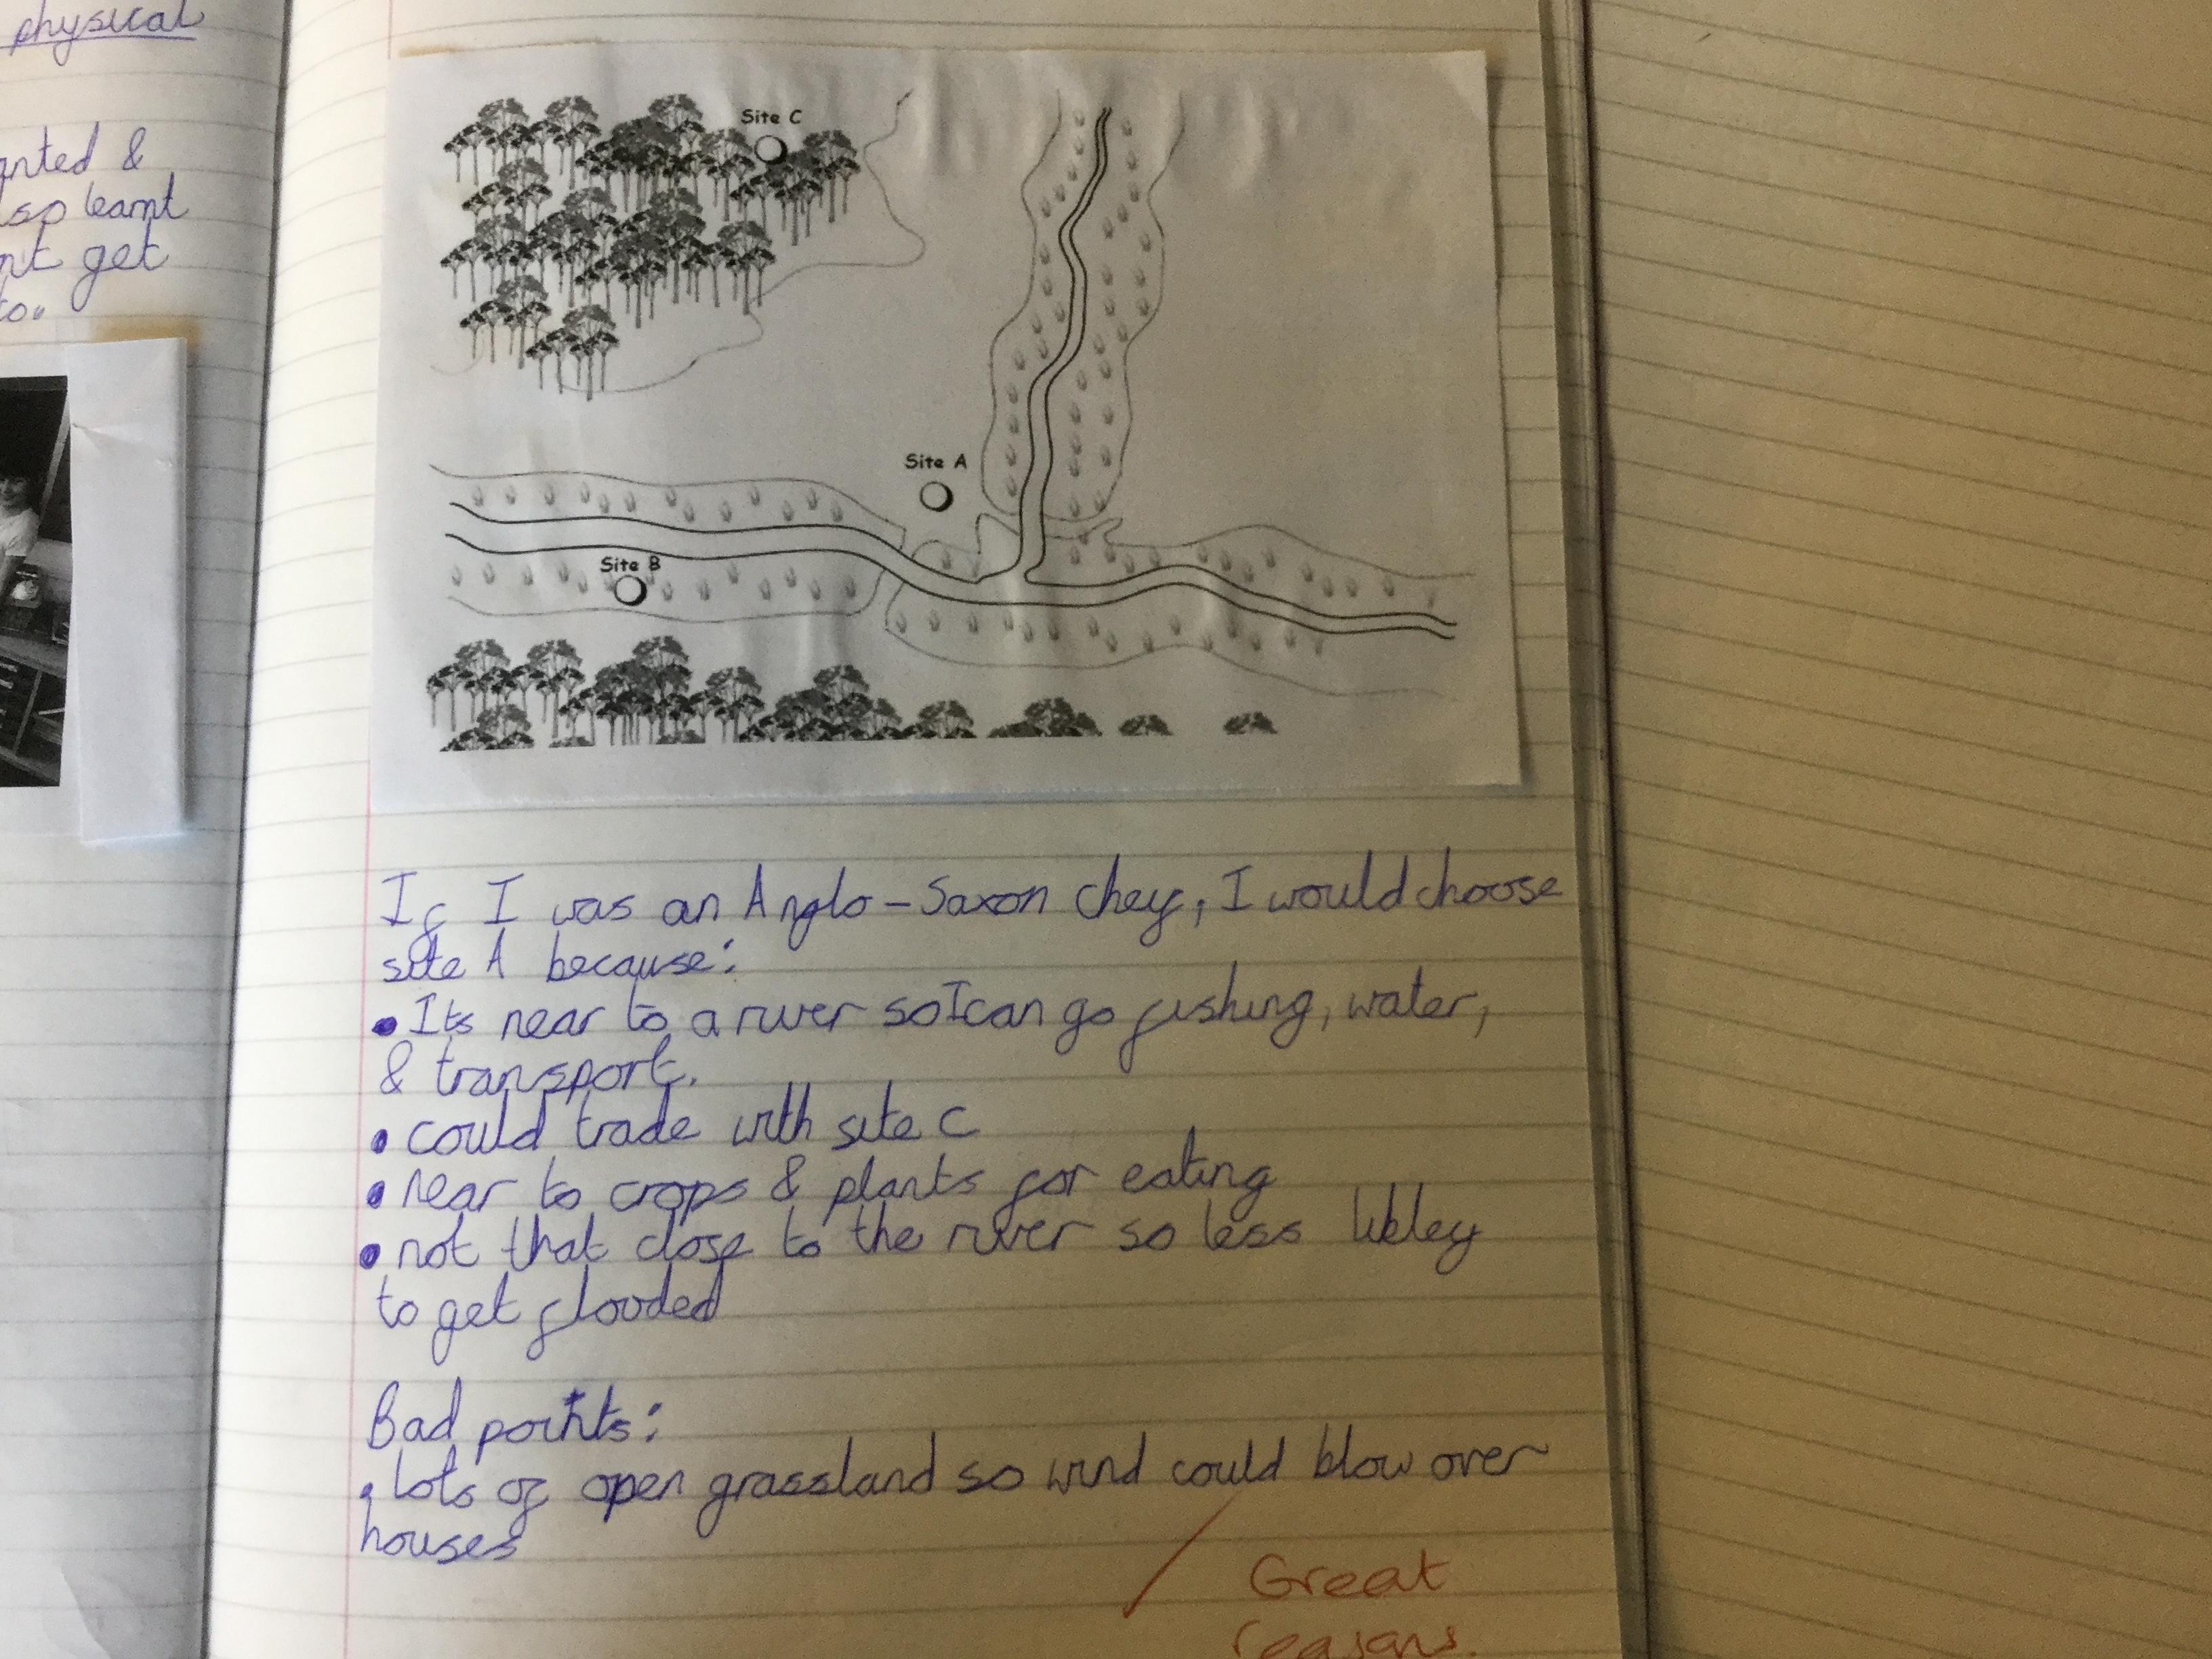 physical
anted &
lso learnt
nt get
to.
Site C
Site A
Site B
If I was an Anglo-Saxon cheif, I would choose
site A because:
• Its near to a river so I can go fishing, water,
& transport.
• could trade with site C
• near to crops & plants for eating
• not that close to the river so less likley
to get flooded
Bad points:
• lots of open grassland so wind could blow over
houses
Great
reasons.